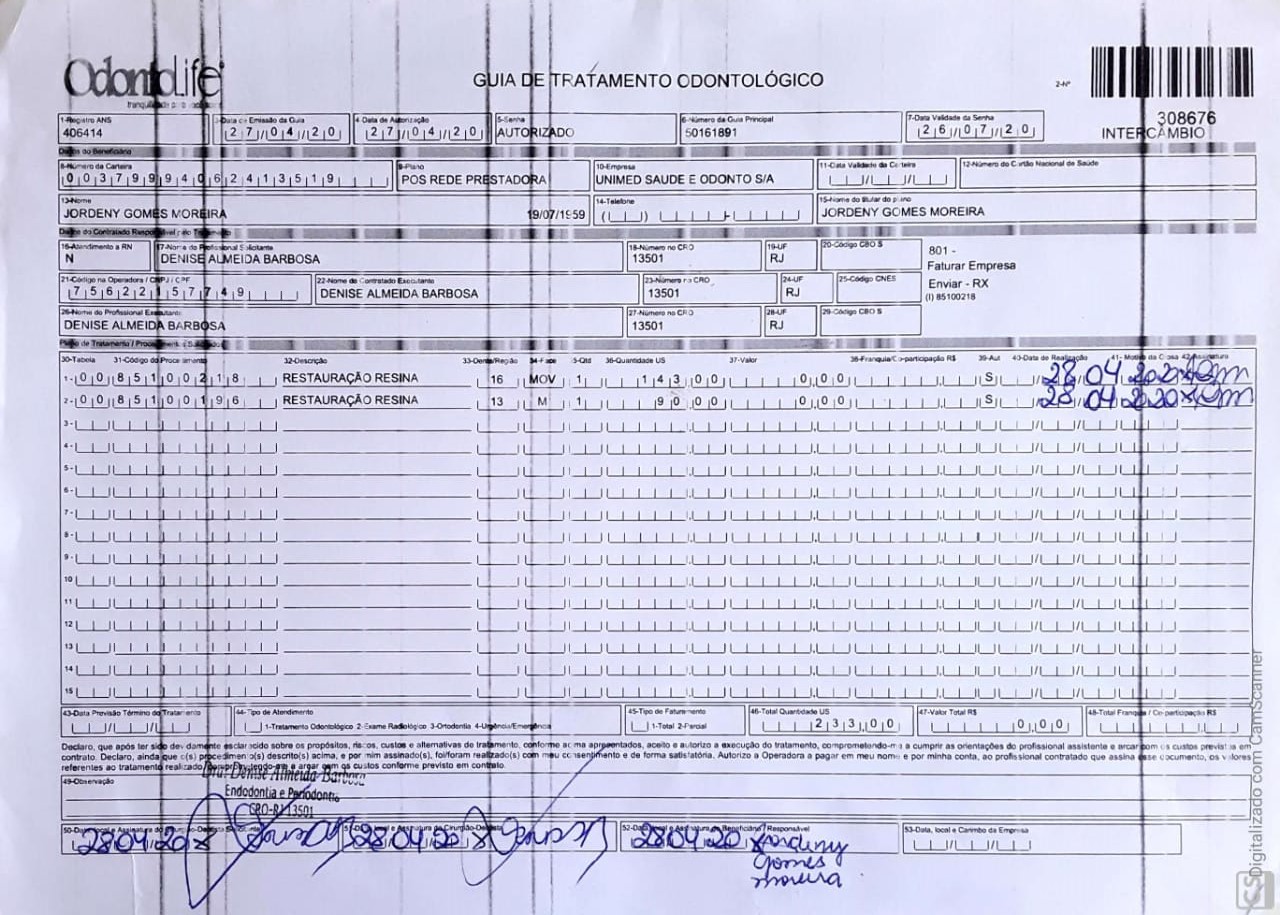 OdontoLife
GUIA DE TRATAMENTO ODONTOLÓGICO
2-Nº
308676
INTERCÂMBIO
1-Registro ANS
406414
3-Data de Emissão da Guia
27/04/20
4-Data de Autorização
27/04/20
5-Senha
AUTORIZADO
6-Número da Guia Principal
50161891
7-Data Validade da Senha
26/07/20
Dados do Beneficiário
8-Número da Carteira
00379994062413519
9-Plano
POS REDE PRESTADORA
10-Empresa
UNIMED SAUDE E ODONTO S/A
11-Data Validade da Carteira
12-Número do Cartão Nacional de Saúde
13-Nome
JORDENY GOMES MOREIRA 19/07/1959
14-Telefone
15-Nome do titular do plano
JORDENY GOMES MOREIRA
Dados do Contratado Responsável pelo Tratamento
16-Atendimento a RN
N
17-Nome do Profissional Solicitante
DENISE ALMEIDA BARBOSA
18-Número no CRO
13501
19-UF
RJ
20-Código CBO S
801 -
Faturar Empresa
Enviar - RX
(I) 85100218
21-Código na Operadora / CNPJ / CPF
75622157749
22-Nome do Contratado Executante
DENISE ALMEIDA BARBOSA
23-Número no CRO
13501
24-UF
RJ
25-Código CNES
26-Nome do Profissional Executante
DENISE ALMEIDA BARBOSA
27-Número no CRO
13501
28-UF
RJ
29-Código CBO S
Plano de Tratamento / Procedimentos Solicitados
30-Tabela 31-Código do Procedimento 32-Descrição 33-Dente/Região 34-Face 35-Qtd 36-Quantidade US 37-Valor 38-Franquia/Co-participação R$ 39-Aut 40-Data de Realização 41- Motivo da Glosa 42-Assinatura
1- 00 85100218 RESTAURAÇÃO RESINA 16 MOV 1 143,00 0,00 S 28/04/2020
2- 00 85100196 RESTAURAÇÃO RESINA 13 M 1 90,00 0,00 S 28/04/2020
3-
4-
5-
6-
7-
8-
9-
10
11
12
13
14
15
43-Data Previsão Término do Tratamento
44-Tipo de Atendimento
1-Tratamento Odontológico 2-Exame Radiológico 3-Ortodontia 4-Urgência/Emergência
45-Tipo de Faturamento
1-Total 2-Parcial
46-Total Quantidade US
233,00
47-Valor Total R$
0,00
48-Total Franquia / Co-participação R$
Declaro, que após ter sido devidamente esclarecido sobre os propósitos, riscos, custos e alternativas do tratamento, conforme acima apresentados, aceito e autorizo a execução do tratamento, comprometendo-me a cumprir as orientações do profissional assistente e arcar com os custos previstos em
contrato. Declaro, ainda que o(s) procedimento(s) descrito(s) acima, e por mim assinado(s), foi/foram realizado(s) com meu consentimento e de forma satisfatória. Autorizo a Operadora a pagar em meu nome e por minha conta, ao profissional contratado que assina esse documento, os valores
referentes ao tratamento realizado, comprometendo-me a arcar com os custos conforme previsto em contrato.
49-Observação
Dra. Denise Almeida Barbosa
Endodontia e Periodontia
CRO-RJ 13501
50-Data, local e Assinatura do Cirurgião-Dentista Solicitante
28/04/20
51-Data, local e Assinatura do Cirurgião-Dentista
28/04/20
52-Data, local e Assinatura do Beneficiário / Responsável
28/04/20 Jordeny
Gomes
Moreira
53-Data, local e Carimbo da Empresa
CS Digitalizado com CamScanner